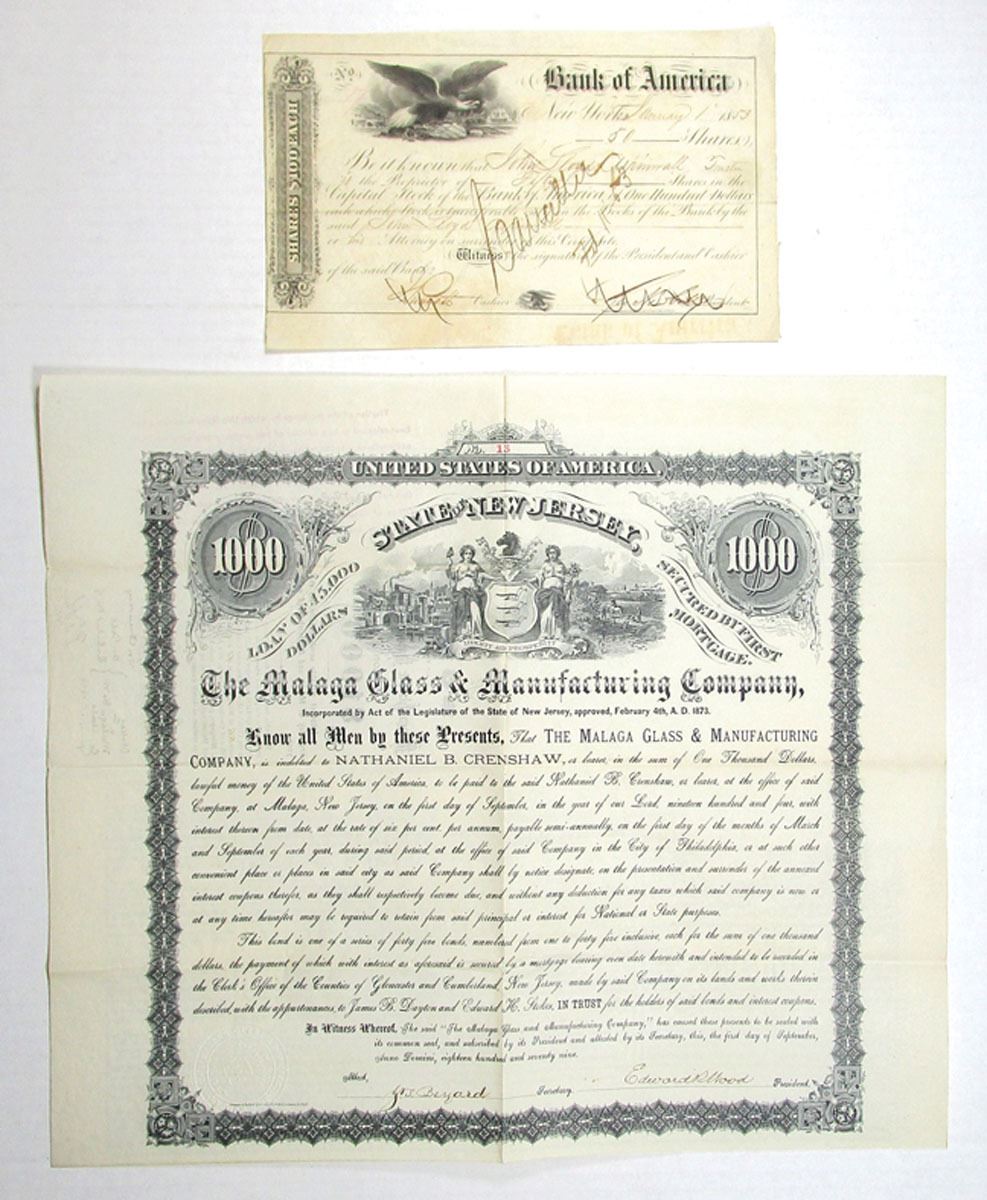 No.
Bank of America
New York 1853
50 Shares,
SHARES $100 EACH
Be it known that John
is the Proprietor of Shares in the
Capital Stock of the Bank of America of One Hundred Dollars
each which Stock is transferable on the Books of the Bank by the
said
or his Attorney on surrender of this Certificate.
Witness the signatures of the President and Cashier
of the said Bank.
Cashier
No. 13
UNITED STATES OF AMERICA,
STATE OF NEW JERSEY,
1000
1000
LOAN OF 45,000 DOLLARS
SECURED BY FIRST MORTGAGE.
LIBERTY AND PROSPERITY
The Malaga Glass & Manufacturing Company,
Incorporated by Act of the Legislature of the State of New Jersey, approved, February 4th, A. D. 1873.
Know all Men by these Presents, That THE MALAGA GLASS & MANUFACTURING
COMPANY, is indebted to NATHANIEL B. CRENSHAW, or bearer, in the sum of One Thousand Dollars,
lawful money of the United States of America, to be paid to the said Nathaniel B. Crenshaw, or bearer, at the office of said
Company, at Malaga, New Jersey, on the first day of September, in the year of our Lord, nineteen hundred and four, with
interest thereon from date, at the rate of six per cent. per annum, payable semi-annually, on the first day of the months of March
and September of each year, during said period, at the office of said Company in the City of Philadelphia, or at such other
convenient place or places in said city as said Company shall by notice designate, on the presentation and surrender of the annexed
interest coupons therefor, as they shall respectively become due, and without any deduction for any taxes which said company is now or
at any time hereafter may be required to retain from said principal or interest for National or State purposes.
This bond is one of a series of forty five bonds, numbered from one to forty five inclusive, each for the sum of one thousand
dollars, the payment of which with interest as aforesaid is secured by a mortgage bearing even date herewith and intended to be recorded in
the Clerk's Office of the Counties of Gloucester and Cumberland, New Jersey, made by said Company on its lands and works therein
described, with the appurtenances, to James B. Dayton and Edward H. Stokes, IN TRUST for the holders of said bonds and interest coupons.
In Witness Whereof, The said "The Malaga Glass and Manufacturing Company," has caused these presents to be sealed with
its common seal, and subscribed by its President and attested by its Secretary, this, the first day of September,
Anno Domini, eighteen hundred and seventy nine.
Attest,
Secretary. Edward R. Wood President.